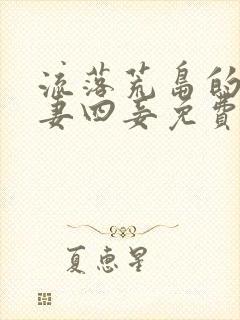 流落荒島的
妻四妾免費
夏恵星